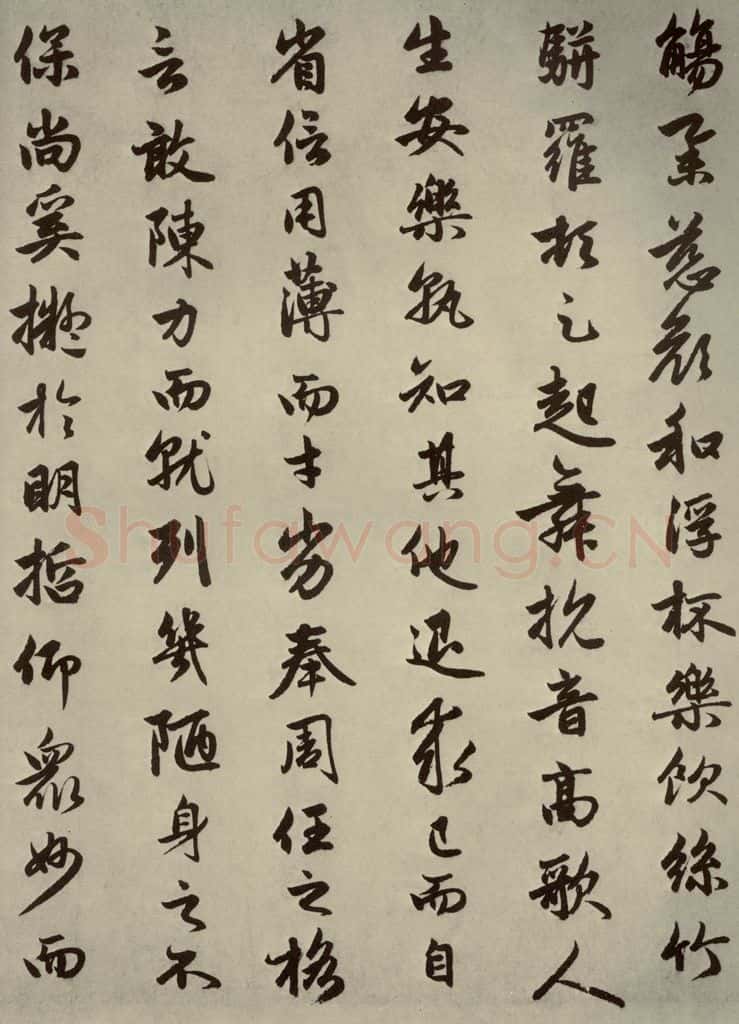 觴舉慈顏和浮杯樂飲絲竹
駢羅頓足起舞抗音高歌人
生安樂孰知其他退求己而自
省信用薄而才劣奉周任之格
言敢陳力而就列幾陋身之不
保尚奚擬於明哲仰眾妙而
Shufawang.CN